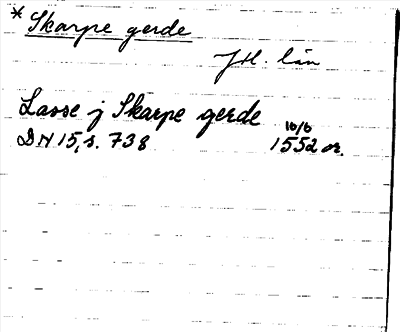 * Skarpe gerde
JH. län
Lasse j Skarpe gerde
DN 15, s. 738 10/6 1552 or.